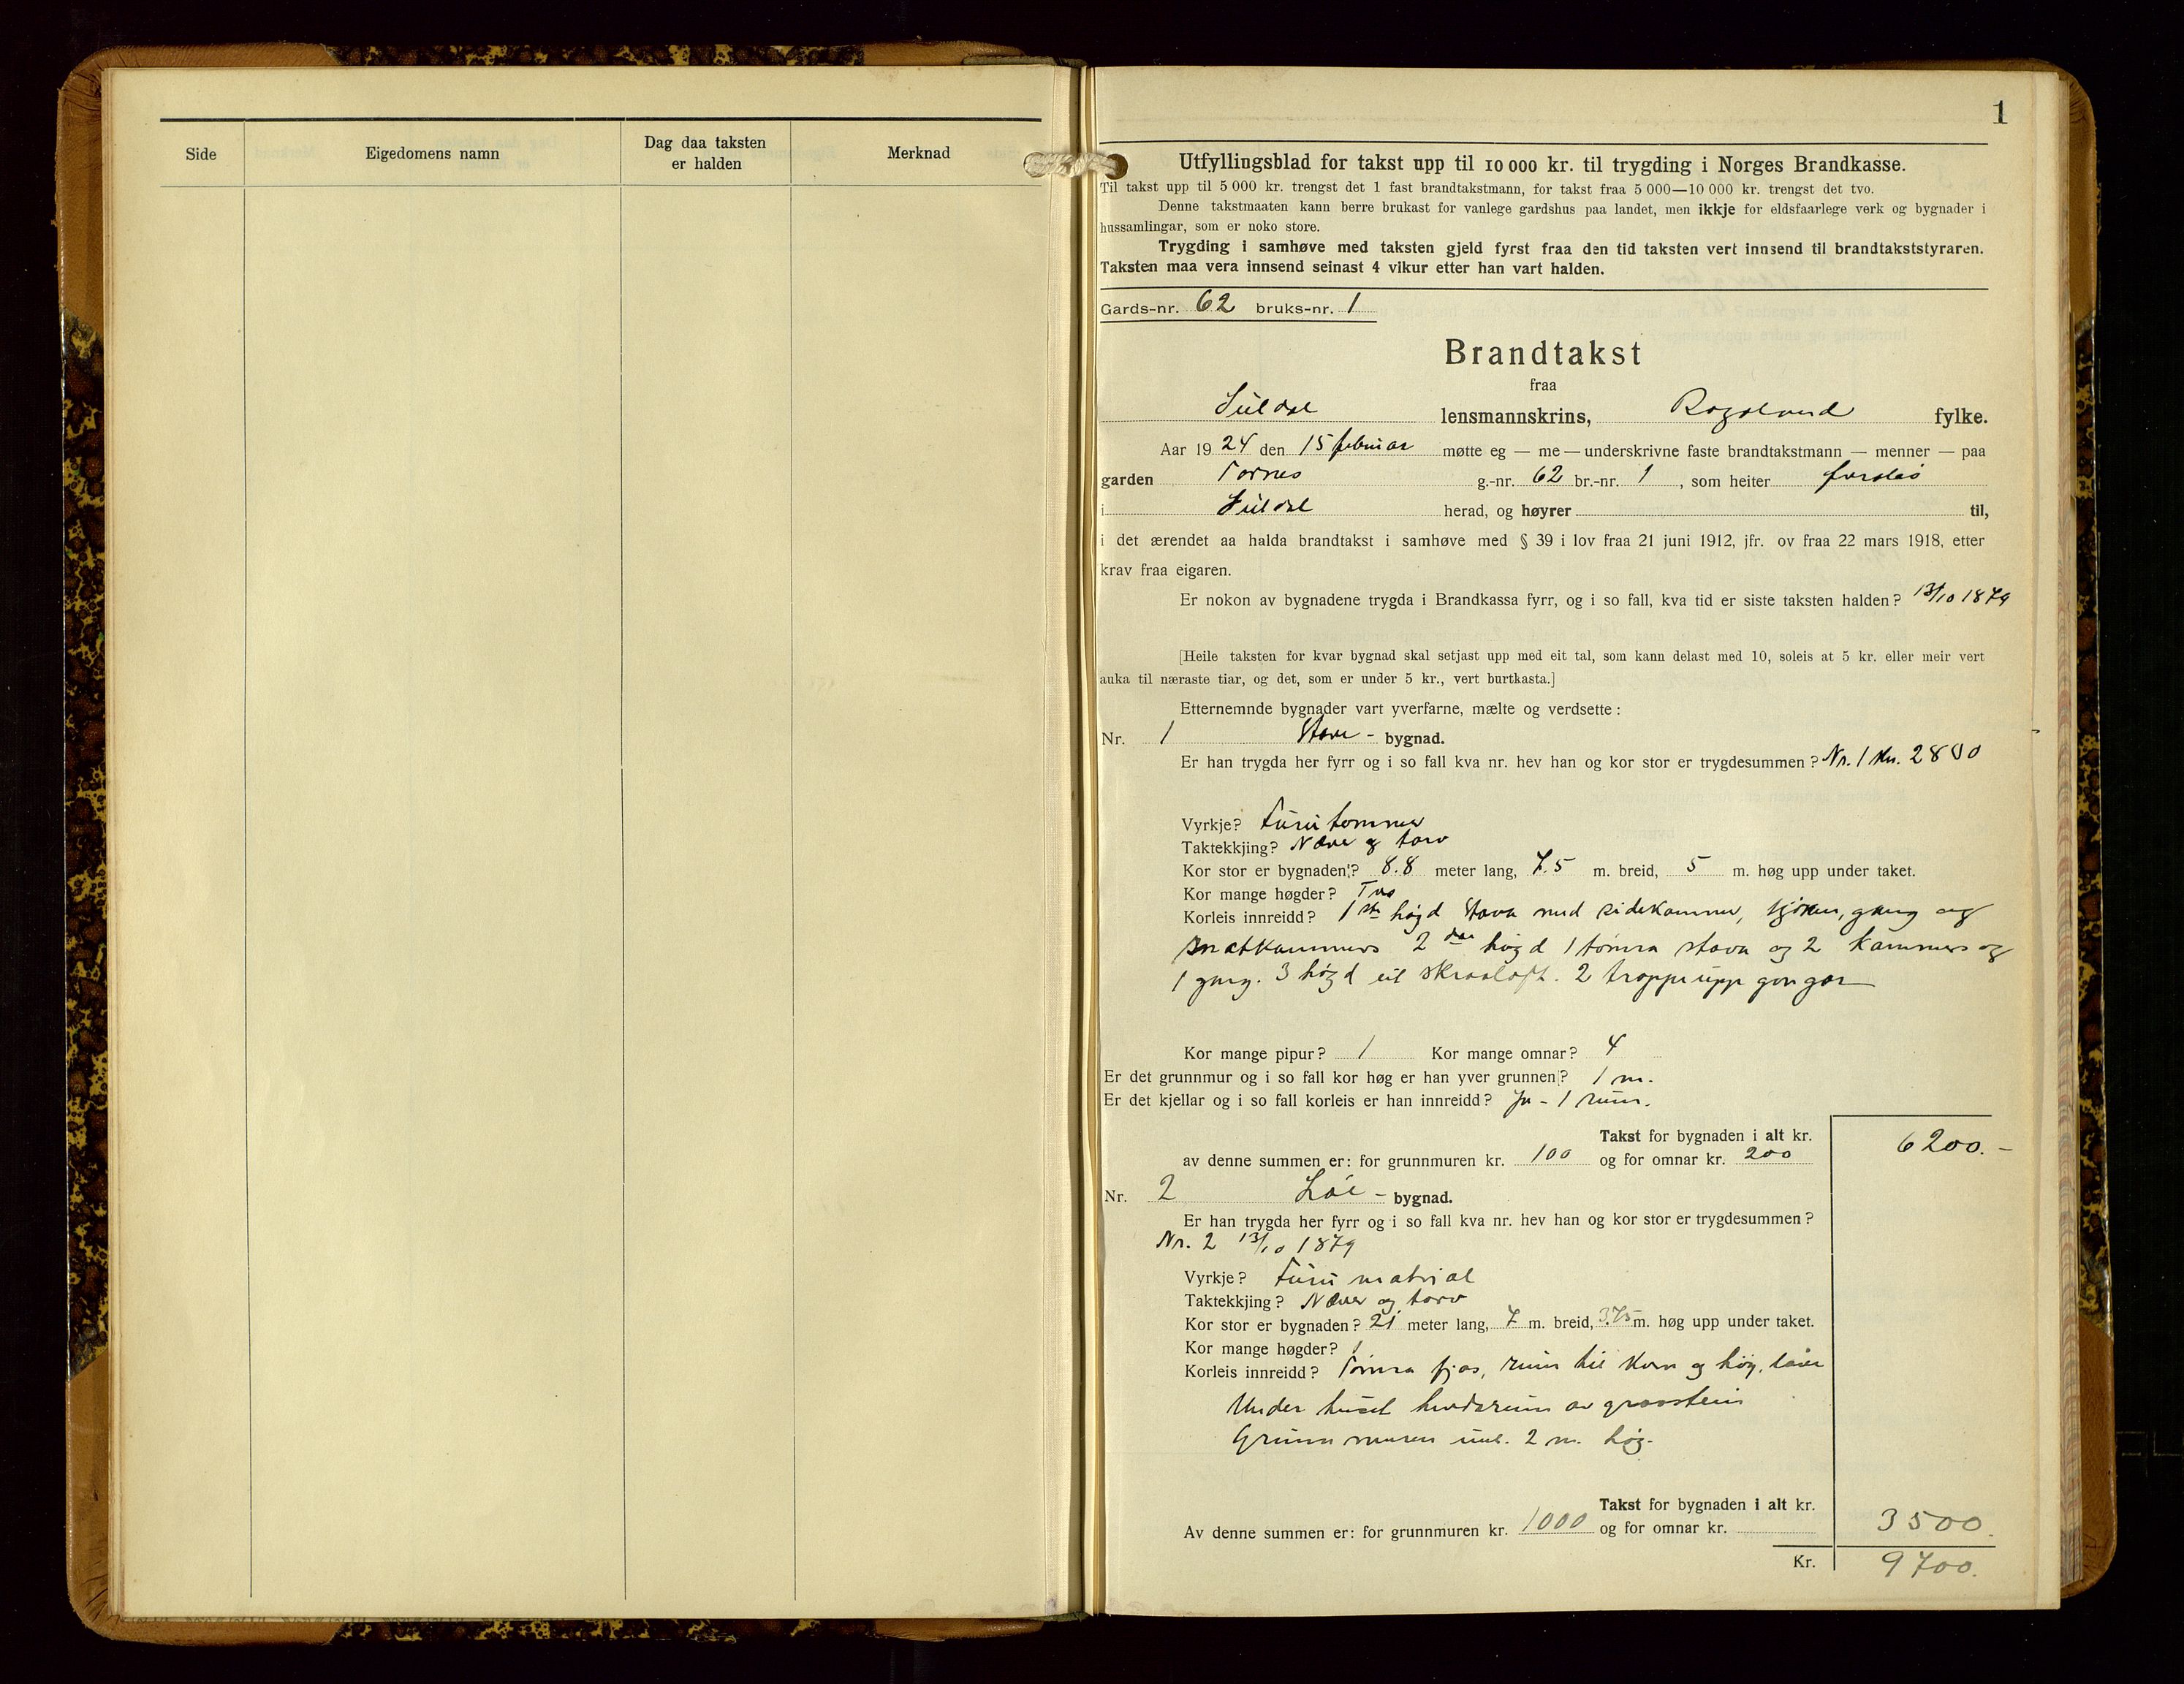 Side
Eigedomens namn
Dag daa taksten
er halden
Merknad
1
Utfyllingsblad for takst upp til 10 000 kr. til trygding i Norges Brandkasse.
Til takst upp til 5 000 kr. trengst det 1 fast brandtakstmann, for takst fraa 5 000—10 000 kr. trengst det tvo.
Denne takstmaaten kann berre brukast for vanlege gardshus paa landet, men ikkje for eldsfaarlege verk og bygnader i
hussamlingar, som er noko store.
Trygding i samhøve med taksten gjeld fyrst fraa den tid taksten vert innsend til brandtakststyraren.
Taksten maa vera innsend seinast 4 vikur etter han vart halden.
Gards-nr. 62 bruks-nr. 1
Brandtakst
fraa
Suldal lensmannskrins, Rogaland fylke.
Aar 1924 den 15 februar møtte eg — me — underskrivne faste brandtakstmann — menner — paa
garden Tornes g.-nr. 62 br.-nr. 1, som heiter
i Suldal herad, og høyrer til,
i det ærendet aa halda brandtakst i samhøve med § 39 i lov fraa 21 juni 1912, jfr. ov fraa 22 mars 1918, etter
krav fraa eigaren.
Er nokon av bygnadene trygda i Brandkassa fyrr, og i so fall, kva tid er siste taksten halden? 13/10 1879
[Heile taksten for kvar bygnad skal setjast upp med eit tal, som kann delast med 10, soleis at 5 kr. eller meir vert
auka til næraste tiar, og det, som er under 5 kr., vert burtkasta.]
Etternemnde bygnader vart yverfarne, mælte og verdsette:
Nr. 1 Stove - bygnad.
Er han trygda her fyrr og i so fall kva nr. hev han og kor stor er trygdesummen? Nr. 1 Kr. 2800
Vyrkje? Furu tømmer
Taktekkjing? Næver og torv
Kor stor er bygnaden? 8.8 meter lang, 7.5 m. breid, 5 m. høg upp under taket.
Kor mange høgder? Tvo
Korleis innreidd? 1ste høgd stova med sidekammer, kjøken, gang og
matkammers 2dre høgd 1 tømra stova og 2 kammers og
1 gang. 3 høgd eit skraaloft. 2 trappeuppgongar
Kor mange pipur? 1 Kor mange omnar? 4
Er det grunnmur og i so fall kor høg er han yver grunnen? 1 m.
Er det kjellar og i so fall korleis er han innreidd? Ja - 1 rum.
Takst for bygnaden i alt kr. 6200.-
av denne summen er: for grunnmuren kr. 100 og for omnar kr. 200
Nr. 2 Løe - bygnad.
Er han trygda her fyrr og i so fall kva nr. hev han og kor stor er trygdesummen?
Nr. 2 13/10 1879
Vyrkje? Furu matrial
Taktekkjing? Næver og torv
Kor stor er bygnaden? 21 meter lang, 7 m. breid, 3.75 m. høg upp under taket.
Kor mange høgder? 1
Korleis innreidd? Tømra fjos, rum til korn og høy,
Under huset av graastein
Grunnmuren 2 m. høg.
Takst for bygnaden i alt kr. 3500.
Av denne summen er: for grunnmuren kr. 1000 og for omnar kr.
Kr. 9700.